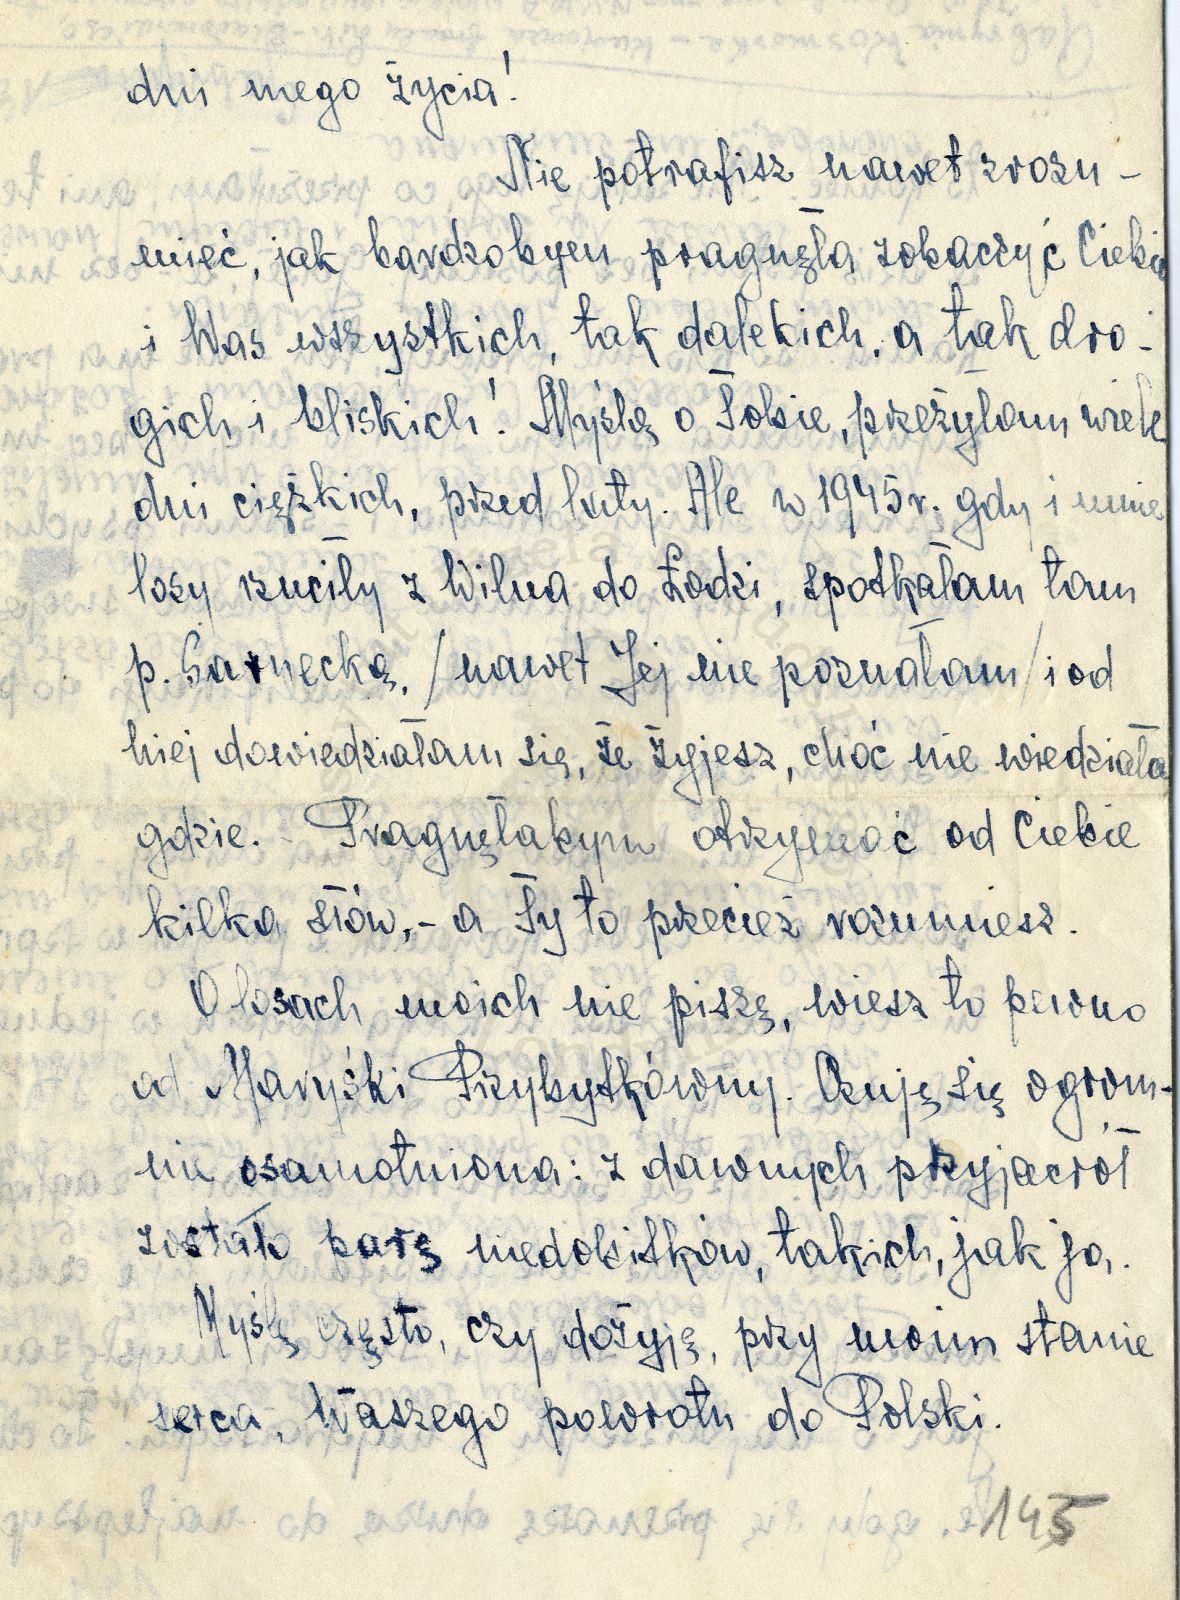 dni mego życia!
Nie potrafisz nawet zrozu-
mieć, jak bardzobym pragnęła zobaczyć Ciebie
i Was wszystkich, tak dalekich, a tak dro-
gich i bliskich! Myślę o Tobie, przeżyłam wiele
dni ciężkich, przed laty. Ale w 1945 r. gdy i mnie
losy rzuciły z Wilna do Łodzi, spotkałam tam
p. Sarnecką, /nawet Jej nie poznałam/ i od
niej dowiedziałam się, że żyjesz, choć nie wiedziała
gdzie. - Pragnęłabym otrzymać od Ciebie
kilka słów, - a Ty to przecież rozumiesz.
O losach moich nie piszę, wiesz to pewno
od Maryśki Przybytkówny. Czuję się ogrom-
nie osamotniona: z dawnych przyjaciół
zostało parę niedobitków, takich, jak ja.
Myślę często, czy dożyję, przy moim stanie
serca, Waszego powrotu do Polski.
145